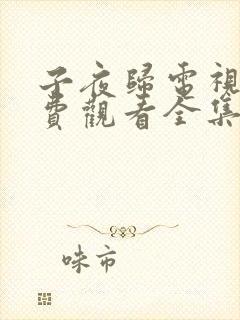 子夜歸電視
費觀看全集
咪市